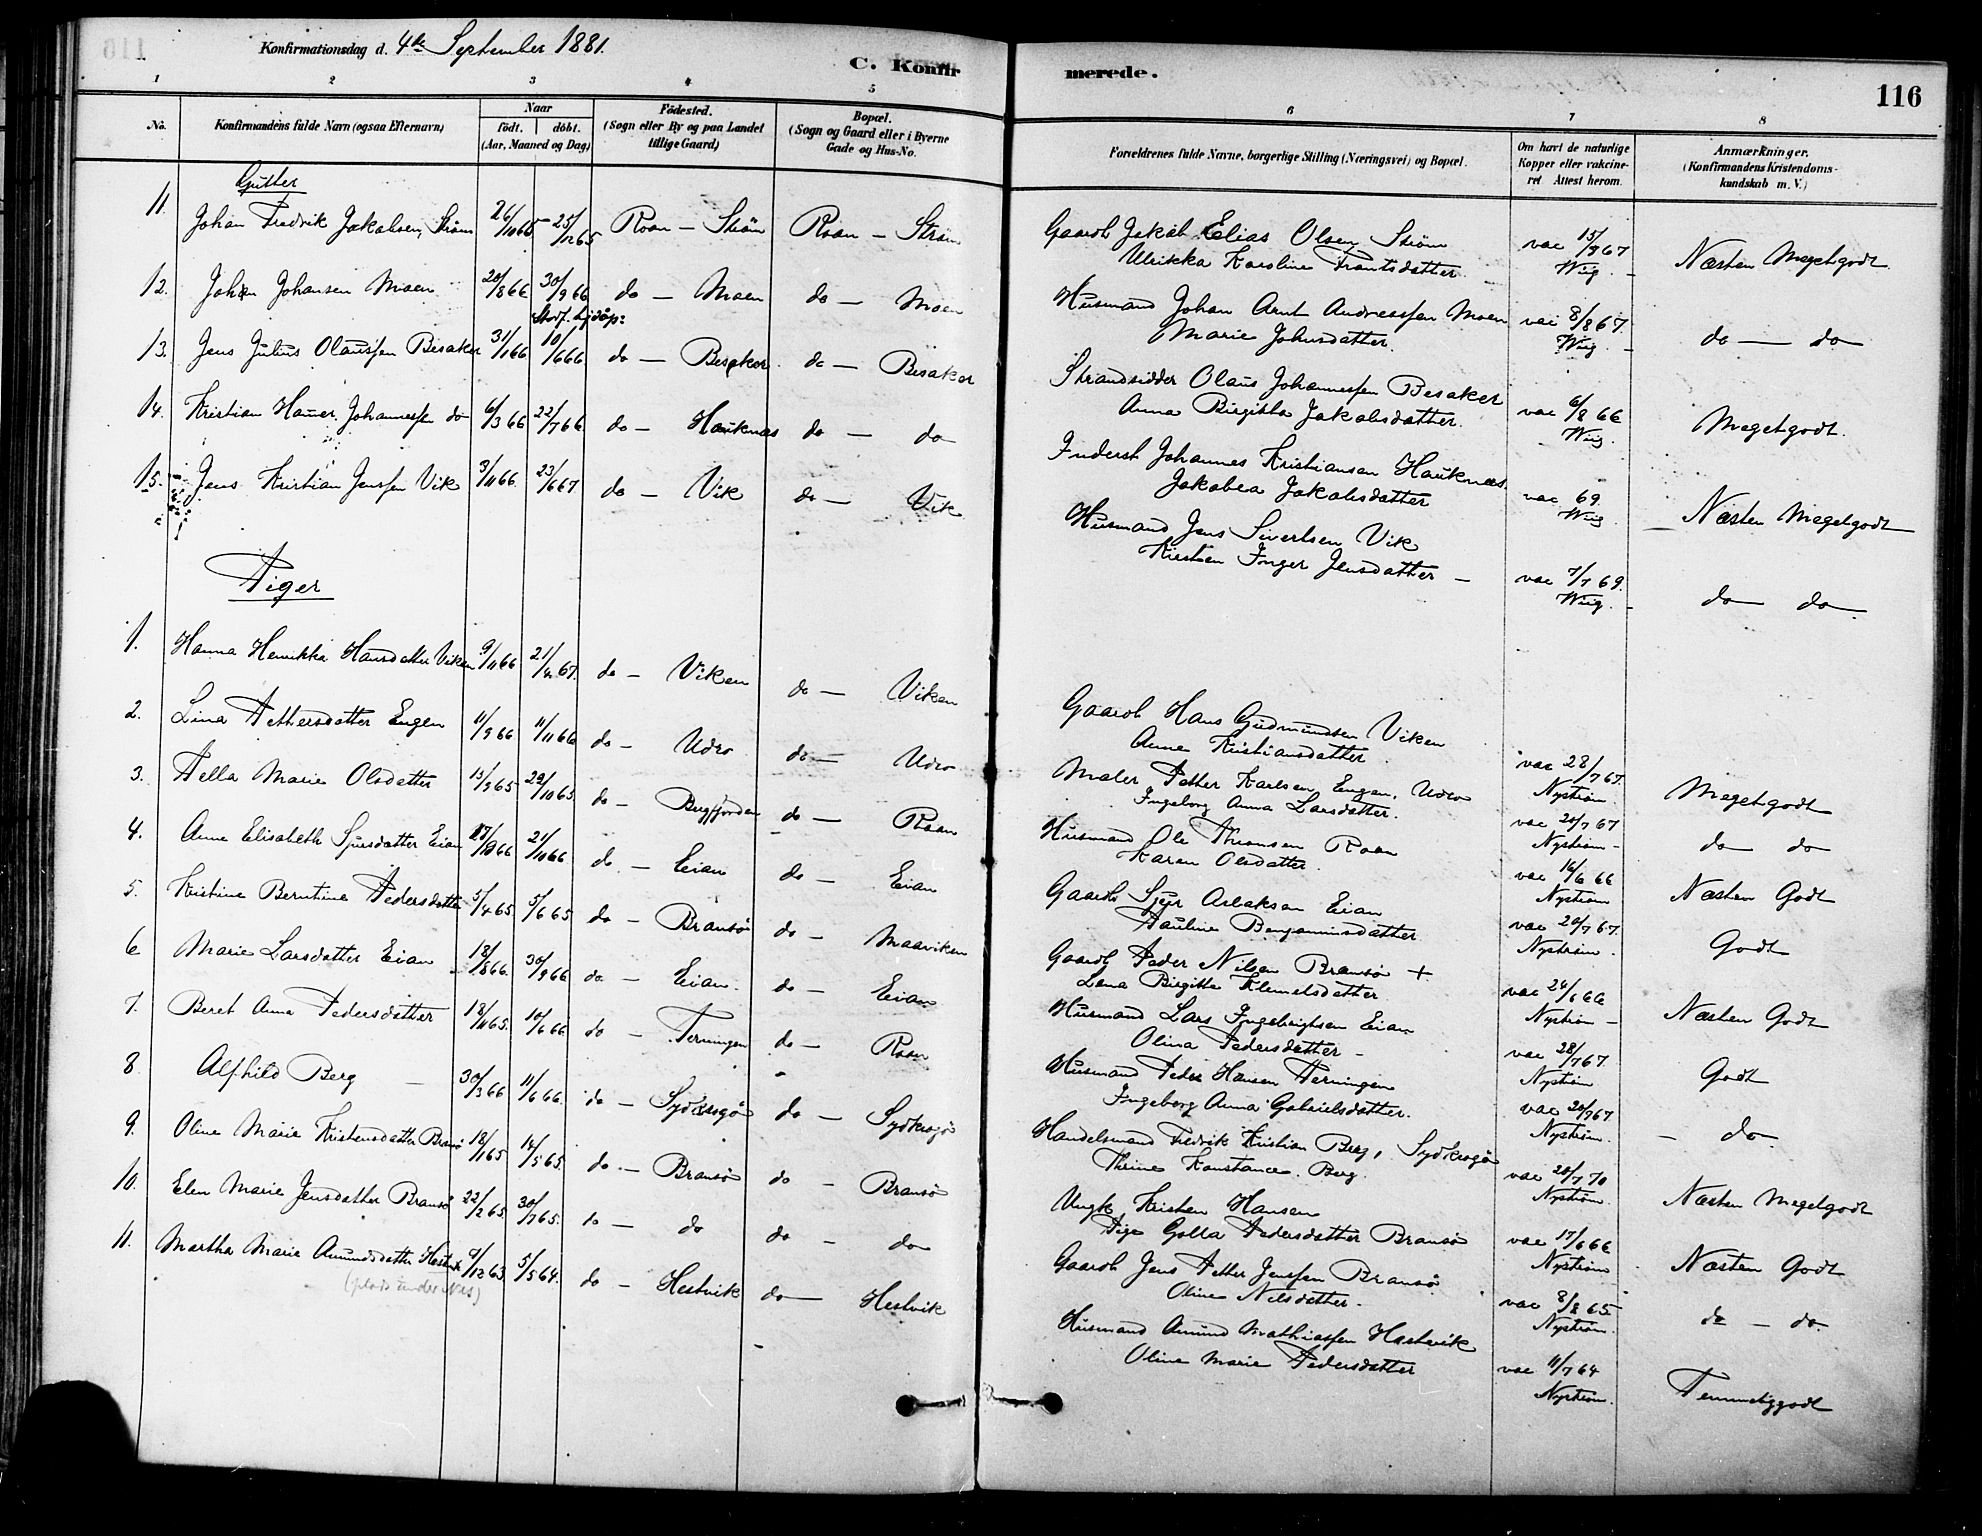 Konfirmationsdag d. 4de September 1881.
C. Konfirmerede.
116
1 2 3 4 5 6 7 8
No.
Konfirmandens fulde Navn (ogsaa Efternavn)
Naar
födt. döbt.
(Aar, Maaned og Dag)
Födested.
(Sogn eller By og paa Landet
tillige Gaard)
Bopæl.
(Sogn og Gaard eller i Byerne
Gade og Hus-No.
Forældrenes fulde Navne, borgerlige Stilling (Næringsvei) og Bopæl.
Om havt de naturlige
Kopper eller vakcine-
ret Attest herom.
Anmærkninger.
(Konfirmandens Kristendoms-
kundskab m. V.)
Gutter
11. Johan Fredrik Jakobsen Ström 26/10 65 25/12 65 Roan — Ström Roan — Ström
Gaardb Jakob Elias Olsen Ström
Ulrikka Karoline Frantsdatter
vac 15/9 67
Wiig
Næsten Megetgodt
12. Johan Johansen Moen 20/8 66 30/9 66 do — Moen do — Moen
Husmand Johan Arnt Andreassen Moen
Marie Johnsdatter
vac 8/8 67.
Wiig
do — do
13. Jens Julius Olaussen Besaker 31/1 66 10/6 66 do — Besaker do — Besaker
Strandsidder Olaus Johannessen Besaker
Anna Birgitta Jakobsdatter.
vac 6/8 66
Wiig.
Megetgodt.
14. Kristian Hauer Johannessen do 6/3 66 22/7 66 do — Hauknes do — do
Inderst Johannes Kristiansen Hauknes
Jakobea Jakobsdatter
vac 69
Wiig
Næsten Megetgodt
15. Jens Kristian Jenssen Vik 3/11 66. 23/6 67 do — Vik do — Vik
Husmand Jens Sivertsen Vik
Kirsten Inger Jensdatter —
vac 7/7 69.
Wiig.
do do
Piger
1. Hanna Henrikka Hansdatter Viken 9/11 66 21/4 67. do — Viken do — Viken
Gaardb Hans Gudmundsen Viken
Anne Kristiansdatter
vac 28/7 67.
Nyström.
Megetgodt
2. Lina Pettersdatter Engen 11/9 66 11/11 66 do — Udro do — Udro
Maler Petter Karlsen Engen, Udro
Ingeborg Anna Larsdatter.
vac 20/7 67
Nyström
do do
3. Pella Marie Olsdatter 13/9 65 29/10 65 do — Bergfjorden do — Roan
Husmand Ole Thomsen Roan
Karen Olsdatter
vac 16/6 66
Nyström
Næsten Godt
4. Anne Elisabeth Sjursdatter Eian 66 21/10 66 do. — Eian do — Eian
Gaardb Sjur Aslaksen Eian
Pauline Benjaminsdatter
vac 20/7 67.
Nyström.
Godt
5. Kristine Berntine Pedersdatter 5/4 65. 5/6 65 do — Bransö do — Maaviken
Gaardb Peder Nilsen Bransö +
Lena Birgitta Klemetsdatter
vac 24/6 66
Nyström
Næsten Godt
6 Marie Larsdatter Eian 18/8 66. 30/9 66 do — Eian. do — Eian
Husmand Lars Ingebrigtsen Eian
Olina Pedersdatter —
vac 28/7 67.
Nyström
Godt
7. Beret Anna Pedersdatter 18/11 65. 10/6 66 do — Terningen do — Roan
Husmand Peder Hansen Terningen
Ingeborg Anna Gabrielsdatter.
vac 20/7 67
Nyström.
do
8 Alfhild Berg — 30/3 66 11/6 66. do — Sydkrogö do — Sydkrogö
Handelsmand Fredrik Kristian Berg, Sydkrogö
Thrine Konstance. Berg.
vac 20/7 70
Nyström.
Næsten Megetgodt
9. Oline Marie Kristensdatter Bransö 18/1 65 14/5 65. do. — Bransö do — Bransö
Ungk. Kristen Hansen
Pige Golla Pedersdatter Bransö
vac 17/6 66
Nyström
Næsten Godt
10. Elen Marie Jensdatter Bransö 22/2 65. 30/7 65. do — do do — do
Gaardb Jens Petter Jenssen Bransö
Oline Nilsdatter.
vac 8/8 65
Nyström.
do — do.
11. Martha Marie Amundsdatter Hestvik 9/12 63. 5/5 64. do — Hestvik do — Hestvik
Husmand Amund Mathiassen Hestvik
Oline Marie Pedersdatter
vac 11/7 64
Nyström.
Temmeliggodt